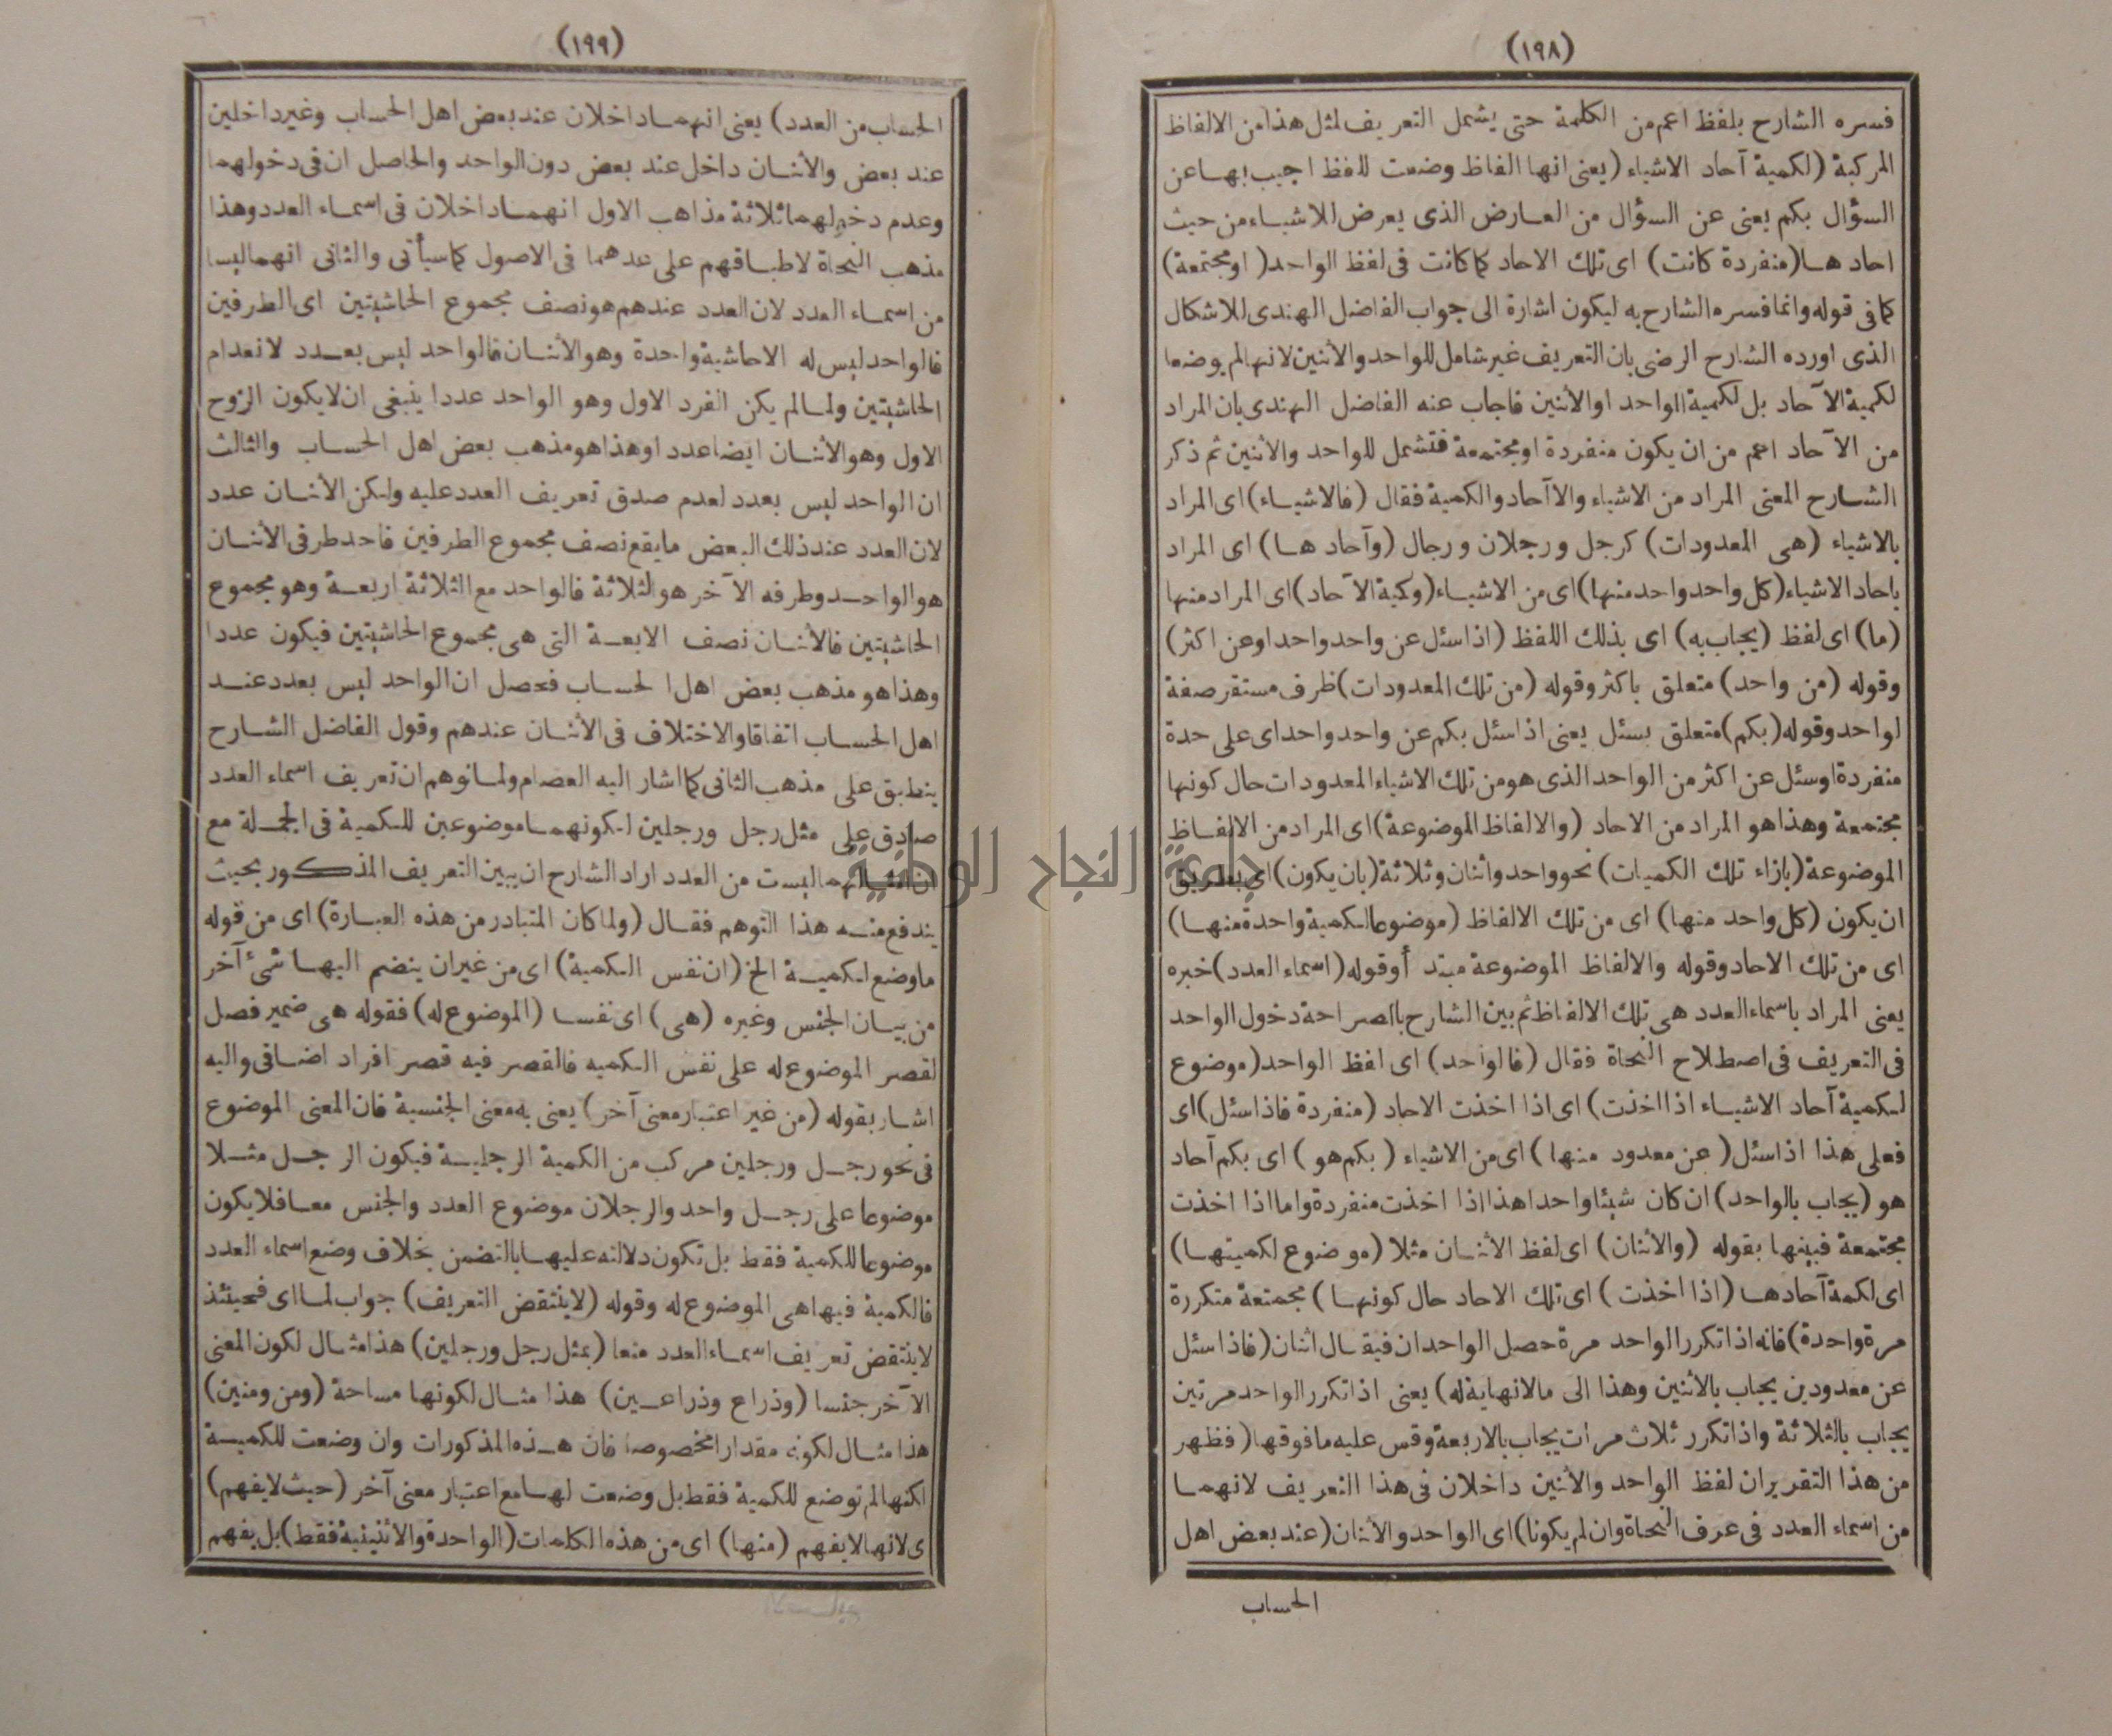 (١٩٨)
فسره الشارح بلفظ اعم من الكلمة حتى يشمل التعريف لمثل هذا من الالفاظ
المركبة (لكمية آحاد الاشياء (يعنى انها الفاظ وضعت للفظ اجيب بها عن
السؤال بكم يعنى عن السؤال من العارض الذى يعرض للاشياء من حيث
احادها (منفردة كانت) اى تلك الاحاد كما كانت فى لفظ الواحد (او مجتمعة)
كما فى قوله وانما فسره الشارح به ليكون اشارة الى جواب الفاضل الهندى للاشكال
الذى اورده الشارح الرضى بان التعريف غير شامل للواحد والأثنين لانهما لم يوضعا
لكمية الآحاد بل لكمية الواحد او الأثنين فاجاب عنه الفاضل الهندى بان المراد
من الآحاد اعم من ان يكون منفردة او مجتمعة فتشمل للواحد والاثنين ثم ذكر
الشارح المعنى المراد من الاشياء والاآحاد والكمية فقال (فالاشياء) اى المراد
بالاشياء (هى المعدودات) كرجل ورجلان ورجال (وآحادها) اى المراد
باحاد الاشياء (كل واحد واحد منها) اى من الاشياء (وكمية الآحاد) اى المراد منها
(ما) اى لفظ (يجاب به) اى بذلك اللفظ (اذا سئل عن واحد واحد او عن اكثر)
وقوله (من واحد) متعلق باكثر وقوله (من تلك المعدودات) ظرف مستقر صفة
لواحد وقوله (بكم) متعلق بسئل يعنى اذا سئل بكم عن واحد واحد اى على حدة
منفردة اوسئل عن اكثر من الواحد الذى هو من تلك الاشياء المعدودات حال كونها
مجتمعة وهذا هو المراد من الاحاد (والالفاظ الموضوعة) اى المراد من الالفاظ
الموضوعة (بازاء تلك الكميات) نحو واحد واثنان وثلاثة (بان يكون) اى بطريق
ان يكون (كل واحد منها) اى من تلك الالفاظ (موضوعا لكمية واحدة منها)
اى من تلك الاحاد وقوله والالفاظ الموضوعة مبتدأ وقوله (اسماء العدد) خبره
يعنى المراد باسماء العدد هى تلك الالفاظ ثم بين الشارح بالصراحة دخول الواحد
فى التعريف فى اصطلاح النحاة فقال (فالواحد) اى لفظ الواحد (موضوع
لكمية آحاد الاشياء اذا اخذت) اى اذا اخذت الاحاد (منفردة فاذا سئل) اى
فعلى هذا اذا سئل (عن معدود منها) اى من الاشياء (بكم هو) اى بكم آحاد
هو (يجاب بالواحد) ان كان شيئا واحدا هذا اذا اخذت منفردة واما اذا اخذت
مجتمعة فبينها بقوله (والأثنان) اى لفظ الأثنان مثلا (موضوع لكميتها)
اى لكمة آحادها (اذا اخذت) اى تلك الاحاد حال كونها) مجتمعة متكررة
مرة واحدة) فانه اذا تكرر الواحد مرة حصل الواحدان فيقال اثنان (فاذا سئل
عن معدودين يجاب بالأثنين وهذا الى مالا نهاية له) يعنى اذا تكرر الواحد مرتين
يجاب بالثلاثة واذا تكرر ثلاث مرات يجاب بالاربعة وقس عليه ما فوقها (فظهر
من هذا التقرير ان لفظ الواحد والأثنين داخلان فى هذا التعريف لانهما
من اسماء العدد فى عرف النحاة وان لم يكونا) اى الواحد والأثنان (عند بعض اهل
الحساب
(١٩٩)
الحساب من العدد) يعنى انهما داخلان عند بعض اهل الحساب وغير داخلين
عند بعض والأثنان داخل عند بعض دون الواحد والحاصل ان فى دخولهما
وعدم دخولهما ثلاثة مذاهب الاول انهما داخلان فى اسماء العدد وهذا
مذهب النحاة لاطباقهم على عدهما فى الاصول كما سيأتى والثانى انهما ليسا
من اسماء العدد لان العدد عندهم هو نصف مجموع الحاشيتين اى الطرفين
فالواحد ليس له الاحاشية واحدة وهو الأثنان فالواحد ليس بعدد لانعدام
الحاشيتين ولما لم يكن الفرد الاول وهو الواحد عددا ينبغى ان لا يكون الزوج
الاول وهو الأثنان ايضا عددا وهذا هو مذهب بعض اهل الحساب والثالث
ان الواحد ليس بعدد لعدم صدق تعريف العدد عليه ولكن الأثنان عدد
لان العدد عند ذلك البعض ما يقع نصف مجموع الطرفين فاحد طرفى الأثنان
هو الواحد وطرفه الآخر هو الثلاثة فالواحد مع الثلاثة اربعة وهو مجموع
الحاشيتين فالأثنان نصف الابعة التى هى مجموع الحاشيتين فيكون عددا
وهذا هو مذهب بعض اهل الحساب فحصل ان الواحد ليس بعدد عند
اهل الحساب اتفاقا والاختلاف فى الأثنان عندهم وقول الفاضل الشارح
ينطبق على مذهب الثانى كما اشار اليه العصام ولما نوهم ان تعريف اسماء العدد
صادق على مثل رجل ورجلين لكونهما موضوعين للكمية فى الجملة مع
انهما ليست من العدد اراد الشارح ان يبين التعريف المذكور بحيث
يندفع منه هذا التوهم فقال (ولما كان المتبادر من هذه العبارة) اى من قوله
ما وضع لكمية الخ (ان نفس الكمية) اى من غير ان ينضم اليها شئ آخر
من بيان الجنس وغيره (هى) اى نفسا (الموضوع له) فقوله هى ضمير فصل
لقصر الموضوع له على نفس الكميه فالقصر فيه قصر افراد اضافى واليه
اشار بقوله (من غير اعتبار معنى آخر) يعنى به معنى الجنسية فان المعنى الموضوع
فى نحو رجل ورجلين مركب من الكمية الرجلية فيكون الرجل مثلا
موضوعا على رجل واحد والرجلان موضوع العدد والجنس معا فلا يكون
موضوعا للكمية فقط بل تكون دلالته عليها بالتضمن بخلاف وضع اسماء العدد
فالكمية فيها هى الموضوع له وقوله (لا ينتقض التعريف) جواب لما اى فحينئذ
لا ينتقض تعريف اسماء العدد منعا (بمثل رجل ورجلين) هذا مثال لكون المعنى
الآخر جنسا (وذراع وذراعين) هذا مثال لكونها مساحة (ومن ومنين)
هذا مثال لكونه مقدارا مخصوصا فان هذه المذكورات وان وضعت للكمية
لكنها لم توضع للكمية فقط بل وضعت لها مع اعتبار معنى آخر (حيث لا يفهم)
ى لانها لا يفهم (منها) اى من هذه الكلمات (الواحدة والاثنينية فقط) بل يفهم
جامعة النجاح الوطنية